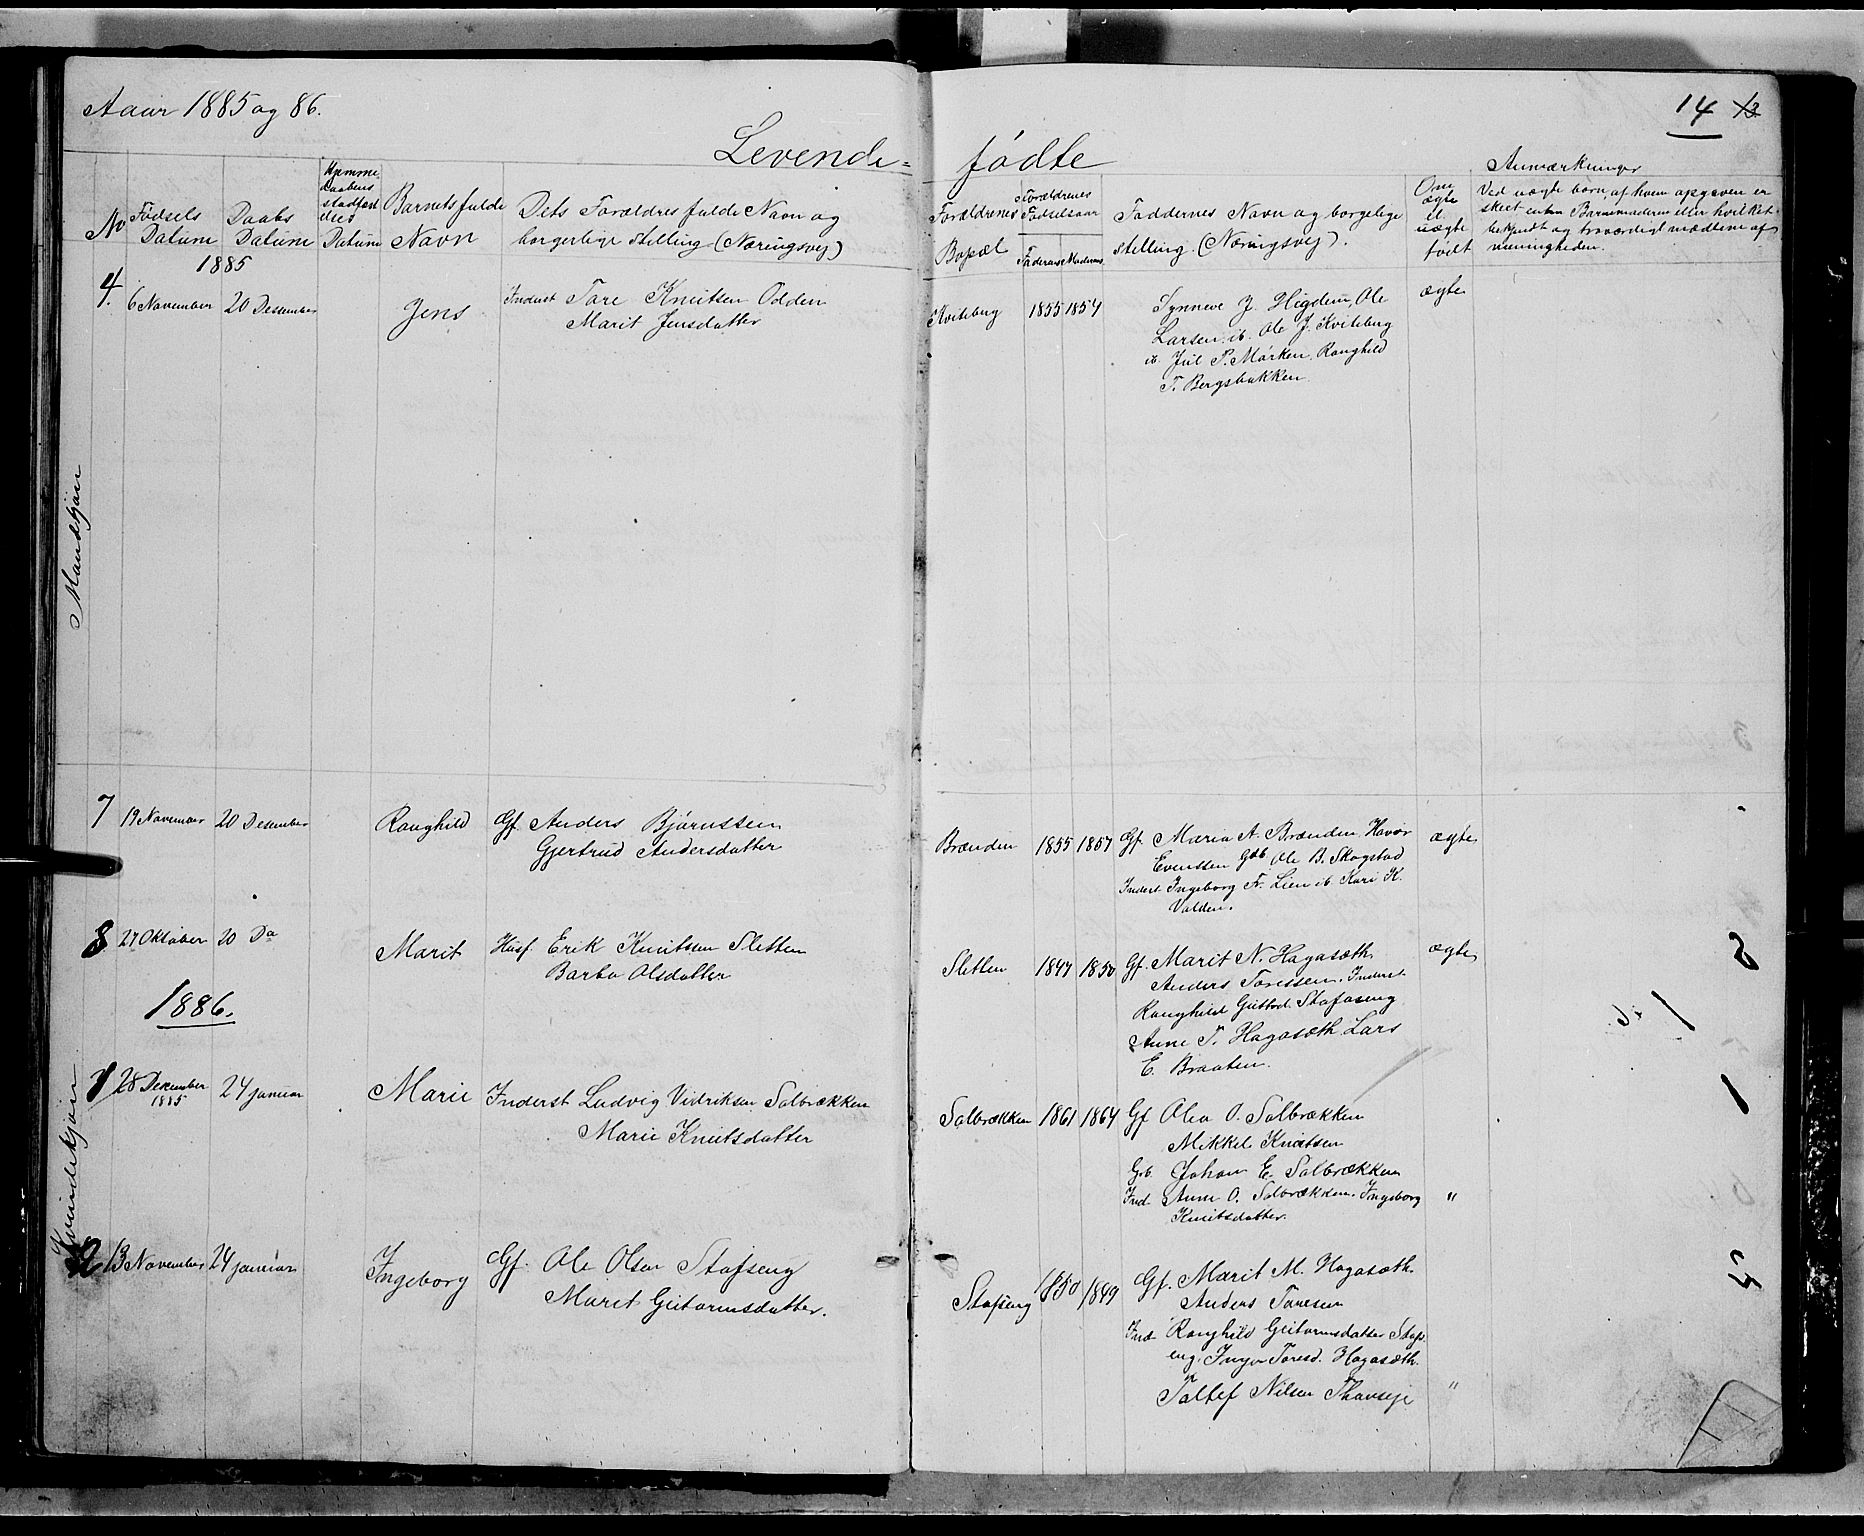 Aaar 1885 og 86.
14 13
Levende-
fødte
No
Fødsels Datum
Daabs Datum
Hjemme daabens stadfæstelses Datum
Barnets fulde Navn
Dets Forældres fulde Navn og
borgerlige stelling (Næringsvej)
Forældrenes Bopæl
Forældrenes Fødselsaar
Faderens Moderens
Faddernes Navn og borgelige
stelling (Næringsvej).
Om ægte el. uægte født
Anmærkninger
Ved uægte børn, af hvem opgeven er
skeet enten Barnemoderen eller hvilket
bekjendt og troværdigt medlem af
meningheden.
1885
Mandkjøn
4. 6 November 20 Desember Jens Inderst Tore Knutsen Odden
Marit Jensdatter
Kviteberg 1855 1854 Synneve J. Higdem, Ole
Larsen ib. Ole J. Kviteberg
ib. Jul P. Mørken, Ranghild
T. Bergsbakken
ægte
7 19 November 20 Desember Ranghild Gf. Anders Bjørnssen
Gjertrud Andersdatter
Brænden 1855 1857 Gf. Maria A. Brænden, Havor
Evenssen Gdb Ole B. Skogstad
Inderst Ingeborg Tr. Lien ib. Kari K.
Volden.
ægte
8 27 Oktober 20 Do Marit Husf. Erik Knutsen Sletten
Barbo Olsdatter
Sletten 1847 1850 Gf. Marit N. Hagasæth
Anders Toressen. Inderst
Ranghild Guttod. Stafaseng
Anne T. Hagasæth Lars
E. Braaten.
ægte
1886.
Kvindekjøn
1 28 Desember 1885 24 januar Marie Inderst Ludvig Vidriksen Solbrækken
Marie Knutsdatter
Solbrækken 1861 1864 Gf Olea O. Solbrækken
Mikkel Knutsen
Gb. Johan E. Solbrækken
Ind. Anne O. Solbrækken. Ingeborg "
Knutsdatter.
2 13 November 24 januar Ingeborg Gf. Ole Olsen Stafseng
Marit Guttormsdatter.
Stafseng 1850 1849 Gf. Marit M. Hagasæth
Anders Toresen
Ind Ranghild Guttormsdatter Stafs
eng. Inga Toresd. Hagasæth
Tollef Nilsen Thavseje "